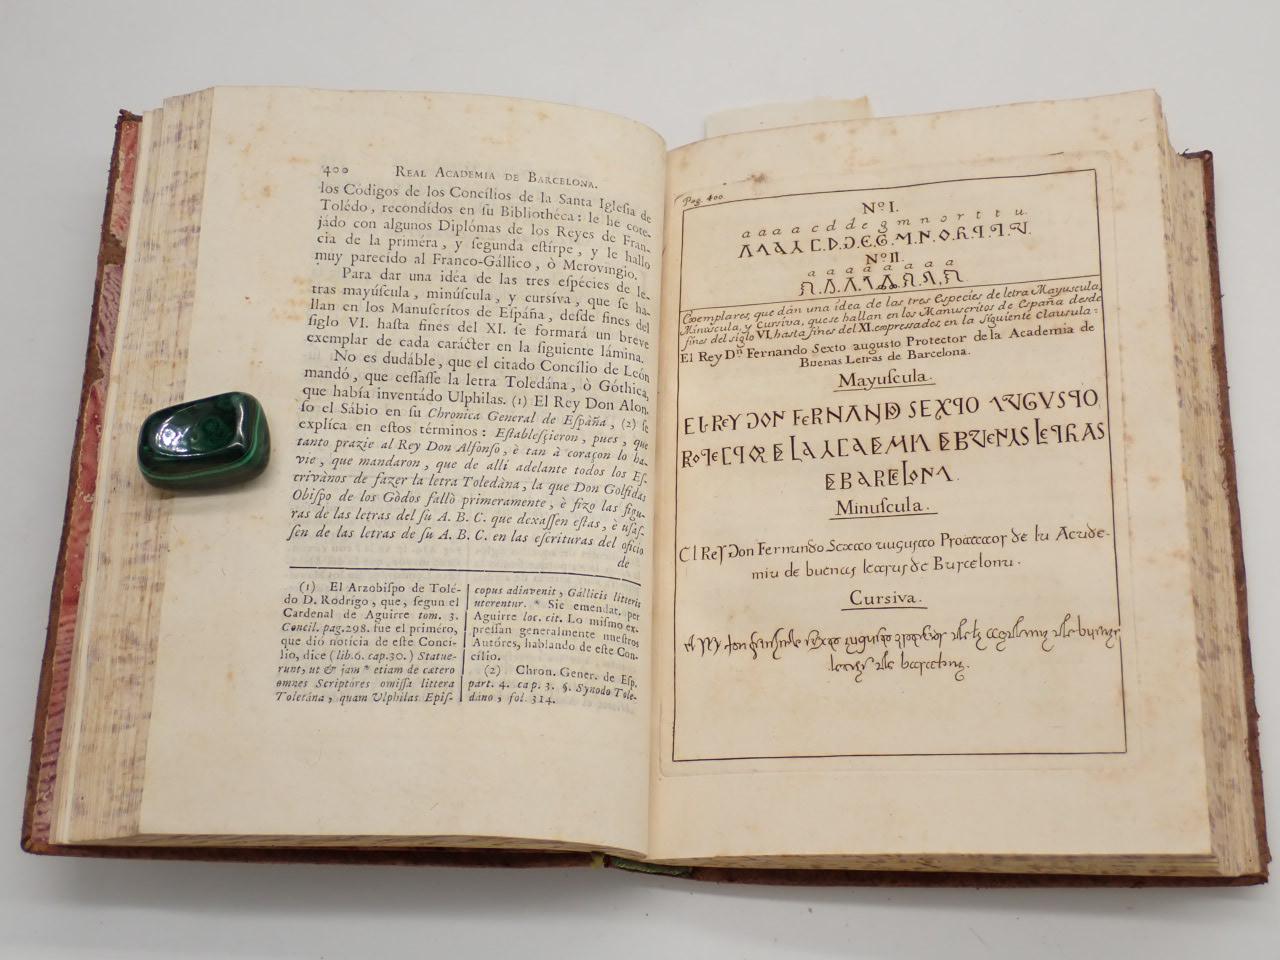 400 REAL ACADEMIA DE BARCELONA.
los Códigos de los Concílios de la Santa Iglesia de
Tolédo, recondídos en ſu Bibliothéca: le hé cote-
jado con algunos Diplómas de los Reyes de Fran-
cia de la priméra, y ſegunda eſtírpe, y le hallo
muy parecído al Franco-Gállico, ò Merovingio.
Para dar una idéa de las tres eſpécies de le-
tras mayúſcula, minúſcula, y curſíva, que ſe ha-
llan en los Manuſcrítos de Eſpáña, deſde fines del
ſiglo VI. haſta fines del XI. ſe formará un breve
exemplar de cada carácter en la ſiguiente lámina.
No es dudáble, que el citado Concílio de León
mandó, que ceſſaſſe la letra Toledána, ò Góthica,
que había inventádo Ulphilas. (1) El Rey Don Alon-
ſo el Sábio en ſu Chronica General de Eſpaña, (2) ſe
explíca en eſtos términos: Eſtableſcieron, pues, que
tanto prazie al Rey Don Alfonſo, è tan à coraçon lo ha-
vie, que mandaron, que de alli adelante todos los Eſ-
crivános de fazer la letra Toledána, la que Don Golfidas
Obiſpo de los Gòdos fallò primeramente, è fizo las figu-
ras de las letras del ſu A. B. C. que dexaſſen eſtas, è uſaſ-
ſen de las letras de ſu A. B. C. en las eſcrituras del oficio
de
(1) El Arzobíſpo de Tolé-
do D. Rodrígo, que, ſegun el
Cardenal de Aguirre tom. 3.
Concil. pag. 298. fue el priméro,
que dió notícia de eſte Concí-
lio, dice (lib. 6. cap. 30.) Statue-
runt, ut & jam * etiam de cætero
omnes Scriptóres omiſſa littera
Toletána, quam Ulphilas Epiſ-
copus adinvenit, Gállicis litteris
uterentur. * Sic emendat. per
Aguirre loc. cit. Lo miſmo ex-
preſſan generalmente nueſtros
Autóres, hablando de eſte Con-
cílio.
(2) Chron. Gener. de Eſp.
part. 4. cap. 3. §. Synodo Tole-
dáno, fol. 314.
Pag. 400
Nº I.
a a a a c d d e g m n o r t t u.
Nº II.
a a a a a a a a
Exemplares, que dán una idea de las tres Especies de letra Mayuscula,
Minuscula, y Cursiva, que se hallan en los Manuscritos de España desde
fines del siglo VI. hasta fines del XI. expressados en la siguiente clausula:
El Rey Dn. Fernando Sexto augusto Protector de la Academia de
Buenas Letras de Barcelona.
Mayuſcula.
EL REY DON FERNANDO SEXTO AUGUSTO
PROTECTOR DE LA ACADEMIA DE BUENAS LETRAS
DE BARCELONA.
Minuſcula.
El Rey Don Fernando Sexto augusto Protector de la Acade-
mia de buenas letras de Barcelona.
Cursiva.
el Rey don fernando sexto augusto protector de la academia de buenas
letras de barcelona.